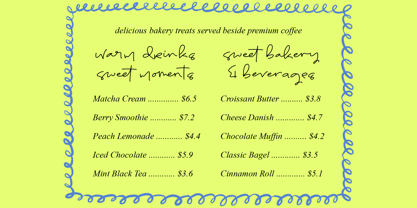 delicious bakery treats served beside premium coffee
warm drinks
sweet moments
sweet bakery
& beverages
Matcha Cream .............. $6.5
Berry Smoothie ............ $7.2
Peach Lemonade ............ $4.4
Iced Chocolate ............ $5.9
Mint Black Tea ............ $3.6
Croissant Butter .......... $3.8
Cheese Danish ............. $4.7
Chocolate Muffin .......... $4.2
Classic Bagel ............. $3.5
Cinnamon Roll ............. $5.1